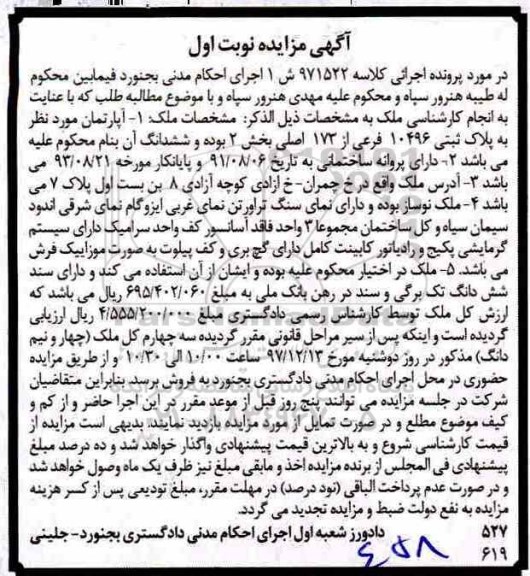 آگهی مزایده نوبت اول
در مورد پرونده اجرائی کلاسه ۹۷۱۵۲۲ ش ۱ اجرای احکام مدنی بجنورد فیمابین محکوم
له طیبه هنرور سپاه و محکوم علیه مهدی هنرور سپاه و با موضوع مطالبه طلب که با عنایت
به انجام کارشناسی ملک به مشخصات ذیل الذکر: مشخصات ملک: ۱- آپارتمان مورد نظر
به پلاک ثبتی ۱۰۴۹۶ فرعی از ۱۷۳ اصلی بخش ۲ بوده و ششدانگ آن بنام محکوم علیه
می باشد ۲- دارای پروانه ساختمانی به تاریخ ۹۱/۰۸/۰۶ و پایانکار مورخه ۹۳/۰۸/۲۱ می
باشد ۳- آدرس ملک واقع در خ چمران-خ ازادی کوچه آزادی ۸ بن بست اول پلاک ۷ می
باشد ۴- ملک نوساز بوده و دارای نمای سنگ تراورتن نمای غربی ایزوگام نمای شرقی اندود
سیمان سیاه و کل ساختمان مجموعا ۳ واحد فاقد آسانسور کف واحد سرامیک دارای سیستم
گرمایشی پکیج و رادیاتور کابینت کامل دارای گچ بری و کف پیلوت به صورت موزاییک فرش
می باشد. ۵- ملک در اختیار محکوم علیه بوده و ایشان از آن استفاده می کند و دارای سند
شش دانگ تک برگی و سند در رهن بانک ملی به مبلغ ۶۹۵/۴۰۲/۰۶۰ ریال می باشد که
ارزش کل ملک توسط کارشناس رسمی دادگستری مبلغ ۴/۵۵۵/۲۰۰/۰۰۰ ریال ارزیابی
گردیده است و اینکه پس از سیر مراحل قانونی مقرر گردیده سه چهارم کل ملک (چهار و نیم
دانگ) مذکور در روز دوشنبه مورخ ۹۷/۱۲/۱۳ ساعت ۱۰/۰۰ الی ۱۰/۳۰ و از طریق مزایده
حضوری در محل اجرای احکام مدنی دادگستری بجنورد به فروش برسد بنابراین متقاضیان
شرکت در جلسه مزایده می توانند پنج روز قبل از موعد مقرر در این اجرا حاضر و از کم و
کیف موضوع مطلع و در صورت تمایل از مورد مزایده بازدید نمایند. بدیهی است مزایده از
قیمت کارشناسی شروع و به بالاترین قیمت پیشنهادی واگذار خواهد شد و ده درصد مبلغ
پیشنهادی فی المجلس از برنده مزایده اخذ و مابقی مبلغ نیز ظرف یک ماه وصول خواهد شد
و در صورت عدم پرداخت الباقی (نود درصد) در مهلت مقرر، مبلغ تودیعی پس از کسر هزینه
مزایده به نفع دولت ضبط و مزایده تجدید می گردد.
۵۲۷ دادورز شعبه اول اجرای احکام مدنی دادگستری بجنورد- جلینی
۶۱۹